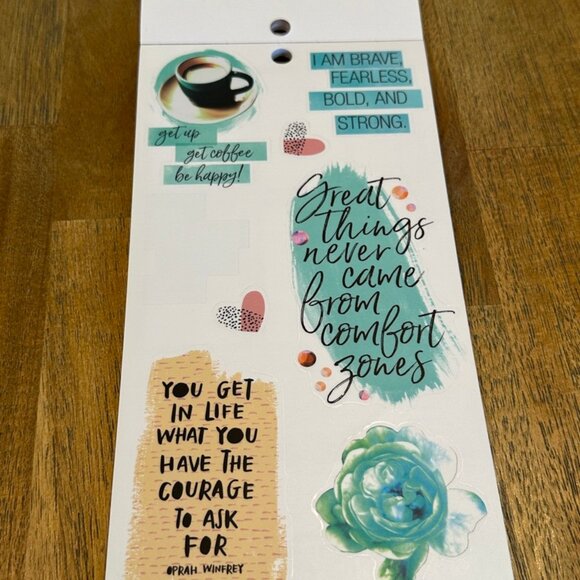 get up
get coffee
be happy!
I AM BRAVE,
FEARLESS,
BOLD, AND
STRONG.
Great
things
never
came
from
comfort
zones
YOU GET
IN LIFE
WHAT YOU
HAVE THE
COURAGE
TO ASK
FOR
OPRAH WINFREY